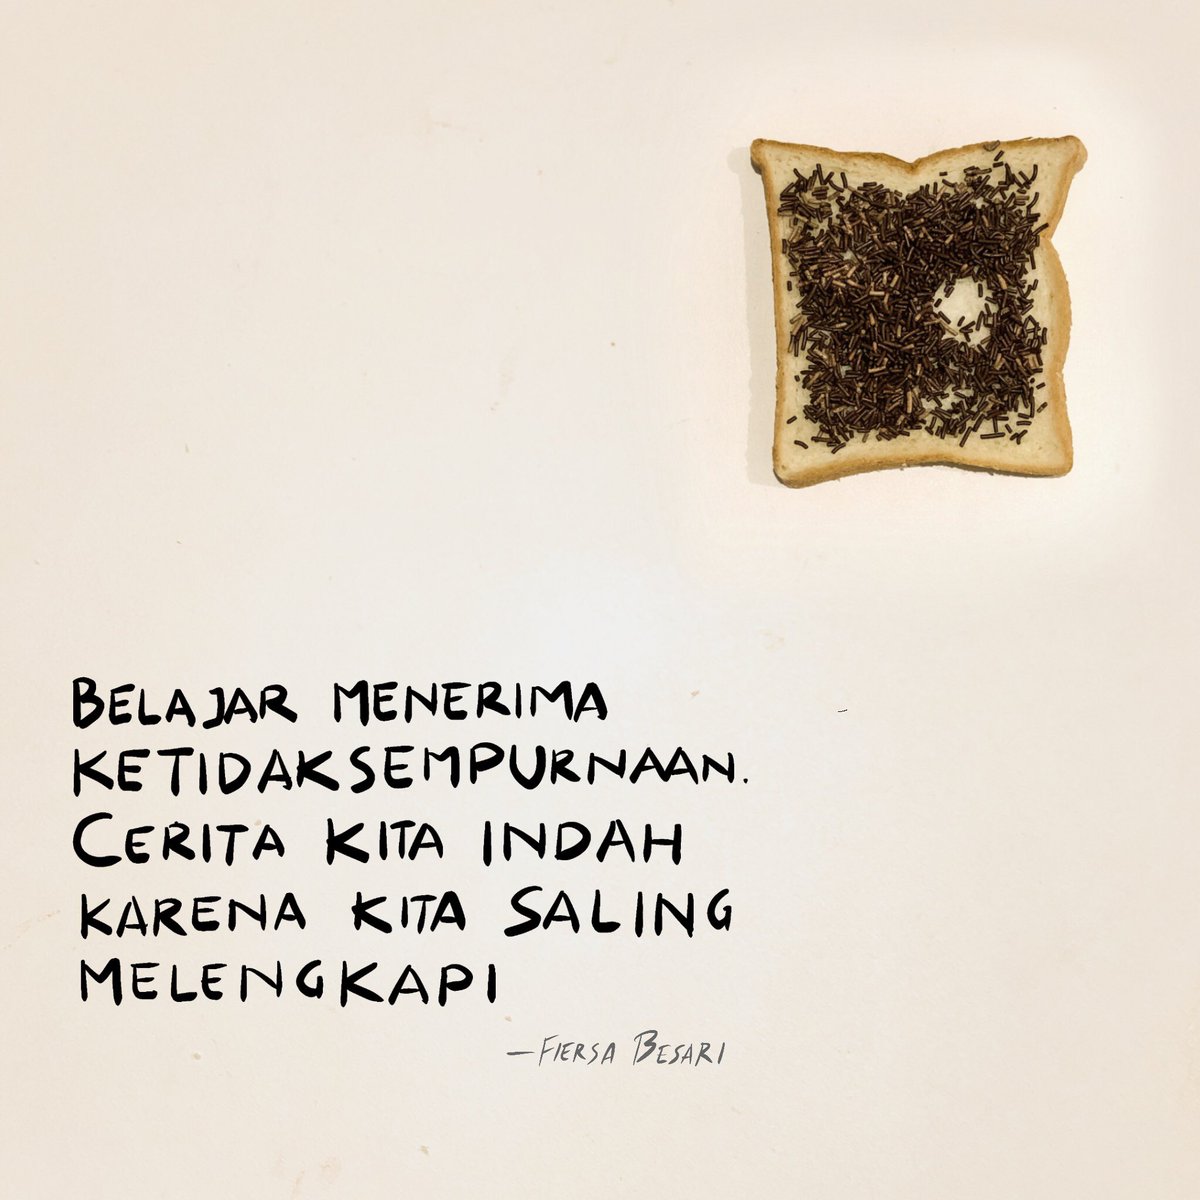 BELAJAR MENERIMA
KETIDAKSEMPURNAAN.
CERITA KITA INDAH
KARENA KITA SALING
MELENGKAPI
—FIERSA BESARI